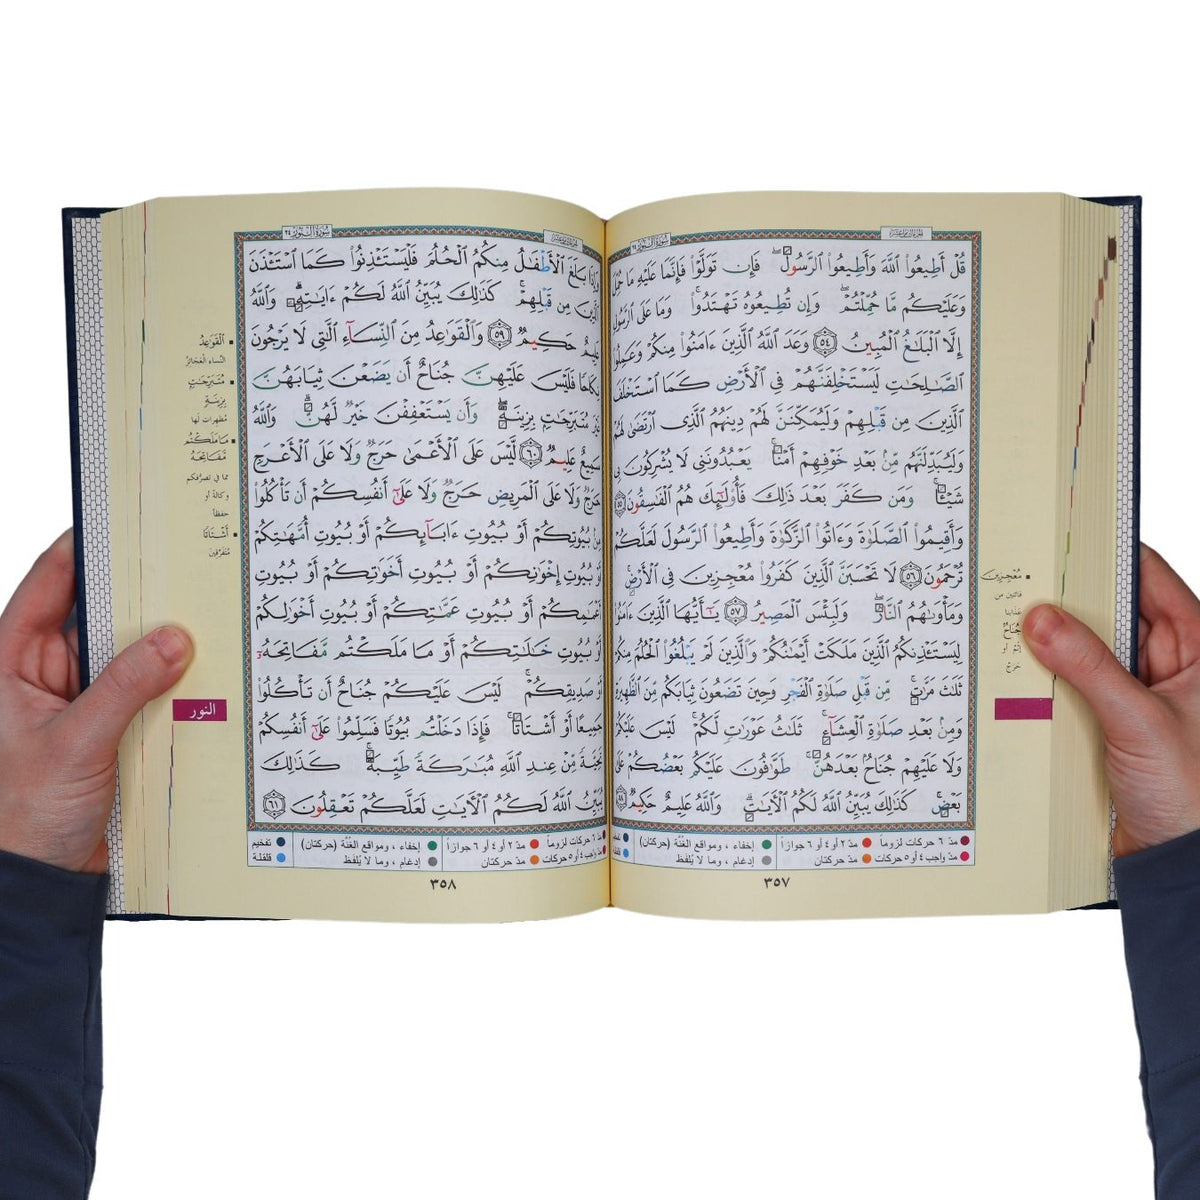 سُورَةُ النُّورِ ٢٤
قُلْ أَطِيعُوا۟ ٱللَّهَ وَأَطِيعُوا۟ ٱلرَّسُولَ ۖ فَإِن تَوَلَّوْا۟ فَإِنَّمَا عَلَيْهِ مَا حُمِّلَ
وَعَلَيْكُم مَّا حُمِّلْتُمْ ۖ وَإِن تُطِيعُوهُ تَهْتَدُوا۟ ۚ وَمَا عَلَى ٱلرَّسُولِ
إِلَّا ٱلْبَلَـٰغُ ٱلْمُبِينُ ٥٤ وَعَدَ ٱللَّهُ ٱلَّذِينَ ءَامَنُوا۟ مِنكُمْ وَعَمِلُوا۟
ٱلصَّـٰلِحَـٰتِ لَيَسْتَخْلِفَنَّهُمْ فِى ٱلْأَرْضِ كَمَا ٱسْتَخْلَفَ
ٱلَّذِينَ مِن قَبْلِهِمْ وَلَيُمَكِّنَنَّ لَهُمْ دِينَهُمُ ٱلَّذِى ٱرْتَضَىٰ لَهُمْ
وَلَيُبَدِّلَنَّهُم مِّنۢ بَعْدِ خَوْفِهِمْ أَمْنًا ۚ يَعْبُدُونَنِى لَا يُشْرِكُونَ بِى
شَيْـًٔا ۚ وَمَن كَفَرَ بَعْدَ ذَٰلِكَ فَأُو۟لَـٰٓئِكَ هُمُ ٱلْفَـٰسِقُونَ ٥٥
وَأَقِيمُوا۟ ٱلصَّلَوٰةَ وَءَاتُوا۟ ٱلزَّكَوٰةَ وَأَطِيعُوا۟ ٱلرَّسُولَ لَعَلَّكُمْ
تُرْحَمُونَ ٥٦ لَا تَحْسَبَنَّ ٱلَّذِينَ كَفَرُوا۟ مُعْجِزِينَ فِى ٱلْأَرْضِ ۚ
وَمَأْوَىٰهُمُ ٱلنَّارُ ۖ وَلَبِئْسَ ٱلْمَصِيرُ ٥٧ يَـٰٓأَيُّهَا ٱلَّذِينَ ءَامَنُوا۟
لِيَسْتَـْٔذِنكُمُ ٱلَّذِينَ مَلَكَتْ أَيْمَـٰنُكُمْ وَٱلَّذِينَ لَمْ يَبْلُغُوا۟ ٱلْحُلُمَ مِنكُمْ
ثَلَـٰثَ مَرَّٰتٍ ۚ مِّن قَبْلِ صَلَوٰةِ ٱلْفَجْرِ وَحِينَ تَضَعُونَ ثِيَابَكُم مِّنَ ٱلظَّهِيرَةِ
وَمِنۢ بَعْدِ صَلَوٰةِ ٱلْعِشَآءِ ۚ ثَلَـٰثُ عَوْرَٰتٍ لَّكُمْ ۚ لَيْسَ عَلَيْكُمْ
وَلَا عَلَيْهِمْ جُنَاحٌۢ بَعْدَهُنَّ ۚ طَوَّٰفُونَ عَلَيْكُم بَعْضُكُمْ عَلَىٰ
بَعْضٍ ۚ كَذَٰلِكَ يُبَيِّنُ ٱللَّهُ لَكُمُ ٱلْـَٔايَـٰتِ ۗ وَٱللَّهُ عَلِيمٌ حَكِيمٌ ٥٨
مُعْجِزِينَ
فائتين من
عذابنا
جُنَاحٌ
إثم أو
حرج
مدّ ٦ حركات لزوماً مدّ ٢ أو ٤ أو ٦ جوازاً إخفاء ، ومواقع الغنّة (حركتان)
مدّ واجب ٤ أو ٥ حركات مدّ حركتان إدغام ، وما لا يُلفظ
٣٥٧
سُورَةُ النُّورِ ٢٤
وَإِذَا بَلَغَ ٱلْأَطْفَـٰلُ مِنكُمُ ٱلْحُلُمَ فَلْيَسْتَـْٔذِنُوا۟ كَمَا ٱسْتَـْٔذَنَ
ٱلَّذِينَ مِن قَبْلِهِمْ ۚ كَذَٰلِكَ يُبَيِّنُ ٱللَّهُ لَكُمْ ءَايَـٰتِهِۦ ۗ وَٱللَّهُ
عَلِيمٌ حَكِيمٌ ٥٩ وَٱلْقَوَٰعِدُ مِنَ ٱلنِّسَآءِ ٱلَّـٰتِى لَا يَرْجُونَ
نِكَاحًا فَلَيْسَ عَلَيْهِنَّ جُنَاحٌ أَن يَضَعْنَ ثِيَابَهُنَّ
غَيْرَ مُتَبَرِّجَـٰتٍۭ بِزِينَةٍ ۖ وَأَن يَسْتَعْفِفْنَ خَيْرٌ لَّهُنَّ ۗ وَٱللَّهُ
سَمِيعٌ عَلِيمٌ ٦٠ لَّيْسَ عَلَى ٱلْأَعْمَىٰ حَرَجٌ وَلَا عَلَى ٱلْأَعْرَجِ
حَرَجٌ وَلَا عَلَى ٱلْمَرِيضِ حَرَجٌ وَلَا عَلَىٰٓ أَنفُسِكُمْ أَن تَأْكُلُوا۟
مِنۢ بُيُوتِكُمْ أَوْ بُيُوتِ ءَابَآئِكُمْ أَوْ بُيُوتِ أُمَّهَـٰتِكُمْ
أَوْ بُيُوتِ إِخْوَٰنِكُمْ أَوْ بُيُوتِ أَخَوَٰتِكُمْ أَوْ بُيُوتِ
أَعْمَـٰمِكُمْ أَوْ بُيُوتِ عَمَّـٰتِكُمْ أَوْ بُيُوتِ أَخْوَٰلِكُمْ
أَوْ بُيُوتِ خَـٰلَـٰتِكُمْ أَوْ مَا مَلَكْتُم مَّفَاتِحَهُۥٓ
أَوْ صَدِيقِكُمْ ۚ لَيْسَ عَلَيْكُمْ جُنَاحٌ أَن تَأْكُلُوا۟
جَمِيعًا أَوْ أَشْتَاتًا ۚ فَإِذَا دَخَلْتُم بُيُوتًا فَسَلِّمُوا۟ عَلَىٰٓ أَنفُسِكُمْ
تَحِيَّةً مِّنْ عِندِ ٱللَّهِ مُبَـٰرَكَةً طَيِّبَةً ۚ كَذَٰلِكَ
يُبَيِّنُ ٱللَّهُ لَكُمُ ٱلْـَٔايَـٰتِ لَعَلَّكُمْ تَعْقِلُونَ ٦١
الْقَوَاعِدُ
النساء العجائز
مُتَبَرِّجَاتٍ
بِزِينَةٍ
مظهرات لها
مَا مَلَكْتُم
مَّفَاتِحَهُ
مما في تصرّفكم
وكالة أو
حفظاً
أَشْتَاتًا
متفرقين
النور
مدّ ٦ حركات لزوماً مدّ ٢ أو ٤ أو ٦ جوازاً إخفاء ، ومواقع الغنّة (حركتان) تفخيم
مدّ واجب ٤ أو ٥ حركات مدّ حركتان إدغام ، وما لا يُلفظ قلقلة
٣٥٨